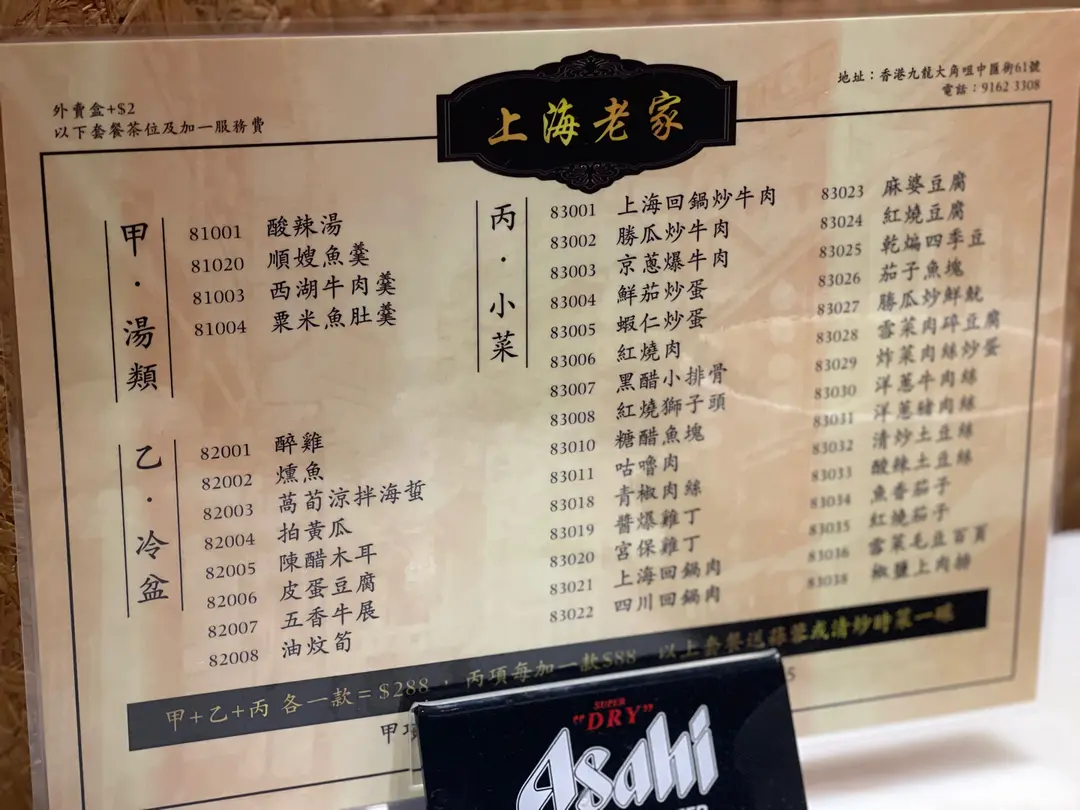 外賣盒+$2
以下套餐茶位及加一服務費
上海老家
地址：香港九龍大角咀中匯街61號
電話：9162 3308
甲·湯類
81001 酸辣湯
81020 順嫂魚羹
81003 西湖牛肉羹
81004 粟米魚肚羹
乙·冷盆
82001 醉雞
82002 燻魚
82003 萵荀涼拌海蜇
82004 拍黃瓜
82005 陳醋木耳
82006 皮蛋豆腐
82007 五香牛展
82008 油炆筍
丙·小菜
83001 上海回鍋炒牛肉
83002 勝瓜炒牛肉
83003 京蔥爆牛肉
83004 鮮茄炒蛋
83005 蝦仁炒蛋
83006 紅燒肉
83007 黑醋小排骨
83008 紅燒獅子頭
83010 糖醋魚塊
83011 咕嚕肉
83018 青椒肉絲
83019 醬爆雞丁
83020 宮保雞丁
83021 上海回鍋肉
83022 四川回鍋肉
83023 麻婆豆腐
83024 紅燒豆腐
83025 乾煸四季豆
83026 茄子魚塊
83027 勝瓜炒鮮魷
83028 雪菜肉碎豆腐
83029 炸菜肉絲炒蛋
83030 洋蔥牛肉絲
83031 洋蔥豬肉絲
83032 清炒土豆絲
83033 酸辣土豆絲
83034 魚香茄子
83035 紅燒茄子
83036 雪菜毛豆百頁
83038 椒鹽上肉排
甲+乙+丙 各一款=$288 · 丙項每加一款$88 以上套餐送蒜蓉或清炒時菜一碟
甲項
SUPER
"DRY"
Asahi